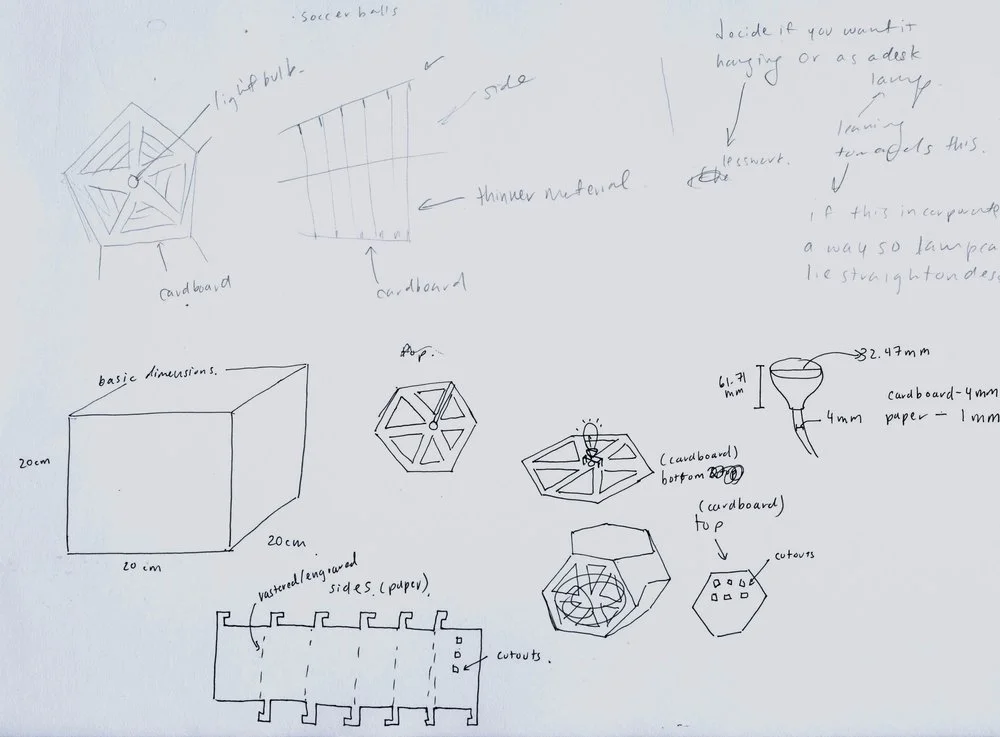 · soccer balls
lightbulb.
cardboard
side
thinner material
cardboard
decide if you want it
hanging or as a desk
lamp.
lesswork.
leaning
towards this.
if this incorporate
a way so lamp ca
lie straight on des
basic dimensions.
20 cm
20 cm
20 cm
top.
(cardboard)
bottom
61.71
mm
32.47mm
4mm
cardboard - 4mm
paper - 1mm
(cardboard)
top
cutouts
rastered/engraved
sides. (paper).
cutouts.